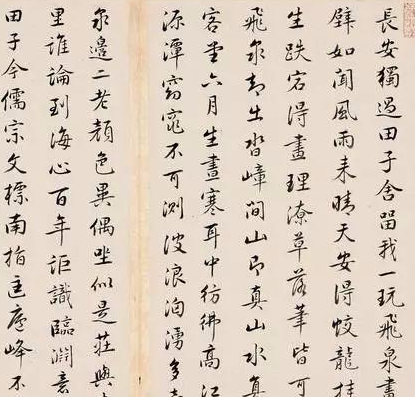 長安獨過田子舍留我一玩飛泉畫
壁如聞風雨來晴天安得蛟龍挂
生跌宕得畫理潦草落筆皆可
飛泉却出沓嶂間山即真山水真
客堂六月生晝寒耳中彷彿高江
源潭窈窕不可測波浪洶湧多
泉邊二老顏色異偶坐似是莊與
里誰論到海心百年詎識臨淵意
田子今儒宗文標南指匡廬峰不